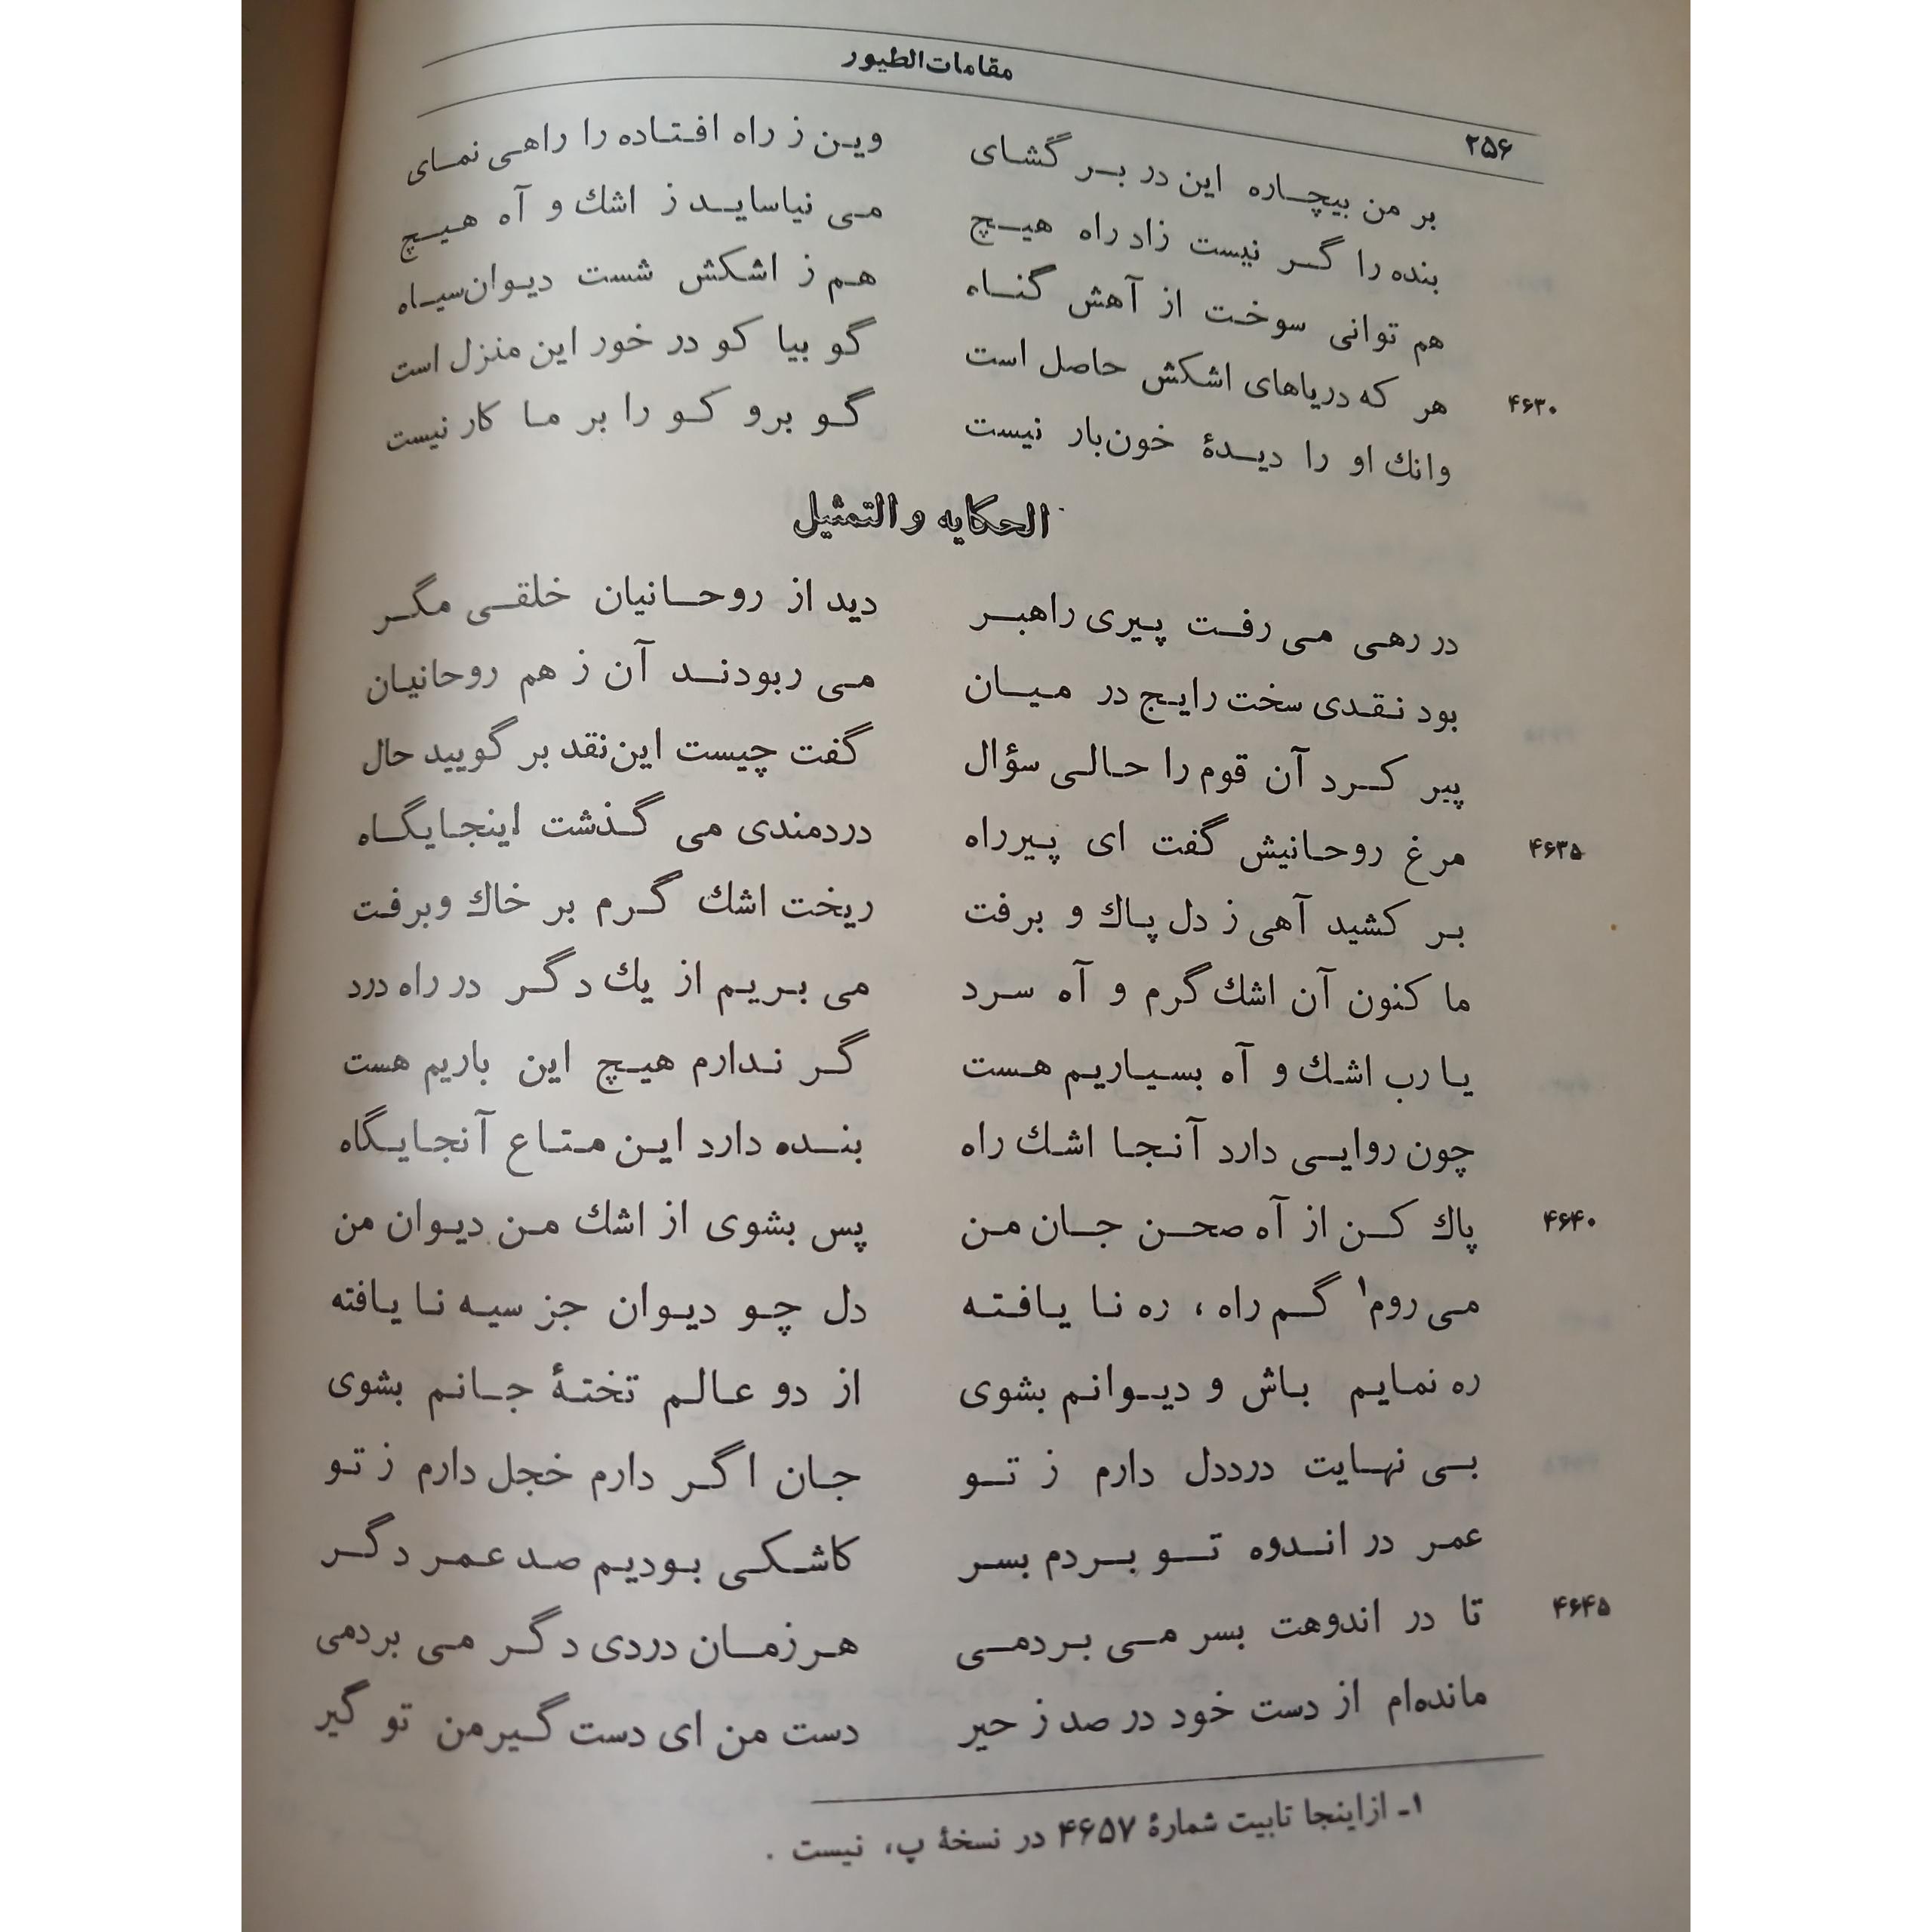 مقامات‌الطیور
۲۵۶
بر من بیچاره این در بر گشای وین ز راه افتاده را راهی نمای
بنده را گر نیست زاد راه هیچ می نیاساید ز اشك و آه هیچ
هم توانی سوخت از آهش گناه هم ز اشکش شست دیوان‌سیاه
۴۶۳۰ هر که دریاهای اشکش حاصل است گو بیا کو در خور این منزل است
وانك او را دیدۀ خون‌بار نیست گو برو کو را بر ما کار نیست
الحکایه والتمثیل
در رهی می رفت پیری راهبر دید از روحانیان خلقی مگر
بود نقدی سخت رایج در میان می ربودند آن ز هم روحانیان
پیر کرد آن قوم را حالی سؤال گفت چیست این‌نقد بر گویید حال
۴۶۳۵ مرغ روحانیش گفت ای پیرراه دردمندی می گذشت اینجایگاه
بر کشید آهی ز دل پاك و برفت ریخت اشك گرم بر خاك وبرفت
ما کنون آن اشك گرم و آه سرد می بریم از یك دگر در راه درد
یا رب اشك و آه بسیاریم هست گر ندارم هیچ این باریم هست
چون روایی دارد آنجا اشك راه بنده دارد این متاع آنجایگاه
۴۶۴۰ پاك کن از آه صحن جان من پس بشوی از اشك من دیوان من
می روم۱ گم راه ، ره نا یافته دل چو دیوان جز سیه نا یافته
ره نمایم باش و دیوانم بشوی از دو عالم تختۀ جانم بشوی
بی نهایت درددل دارم ز تو جان اگر دارم خجل دارم ز تو
عمر در اندوه تو بردم بسر کاشکی بودیم صد عمر دگر
۴۶۴۵ تا در اندوهت بسر می بردمی هرزمان دردی دگر می بردمی
مانده‌ام از دست خود در صد ز حیر دست من ای دست گیرمن تو گیر
۱ـ ازاینجا تابیت شمارۀ ۴۶۵۷ در نسخۀ پ، نیست .